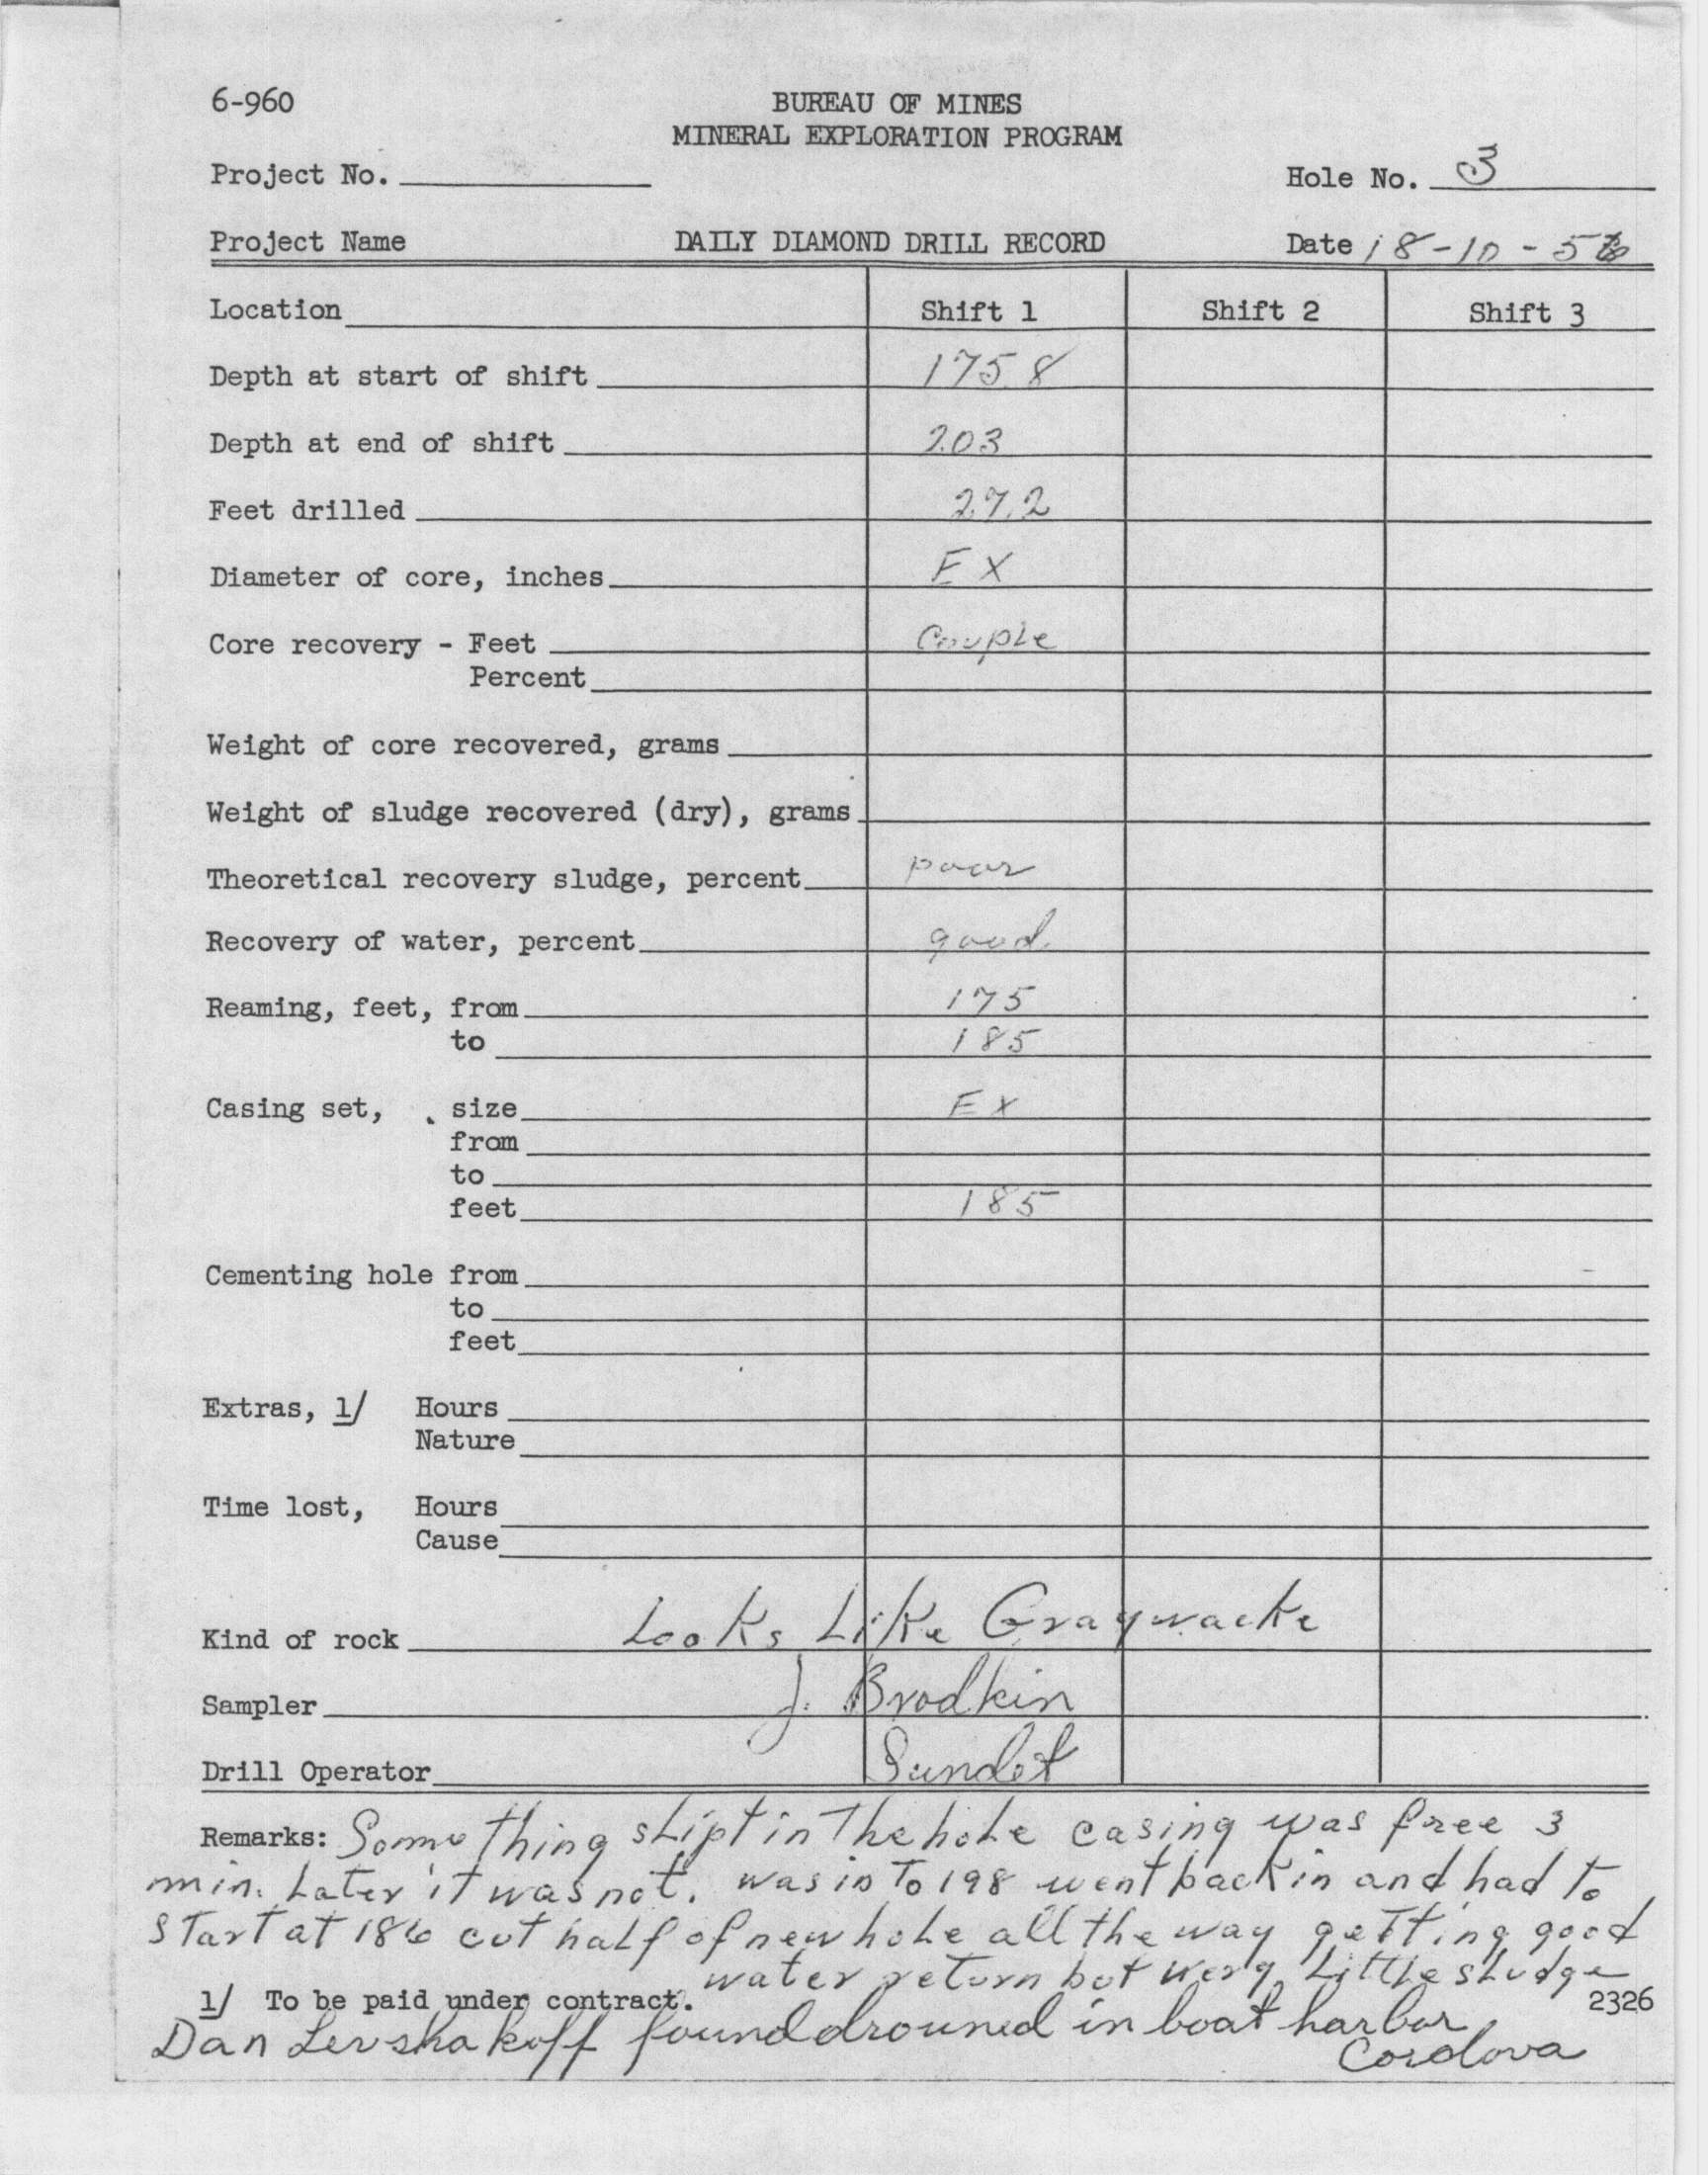 6-960
BUREAU OF MINES
MINERAL EXPLORATION PROGRAM
Project No.
Hole No. 3
Project Name DAILY DIAMOND DRILL RECORD Date 18-10-5
Location Shift 1 Shift 2 Shift 3
Depth at start of shift 175.8
Depth at end of shift 203
Feet drilled 27.2
Diameter of core, inches EX
Core recovery - Feet Couple
Percent
Weight of core recovered, grams
Weight of sludge recovered (dry), grams
Theoretical recovery sludge, percent poor
Recovery of water, percent good.
Reaming, feet, from 175
to 185
Casing set, size EX
from
to
feet 185
Cementing hole from
to
feet
Extras, 1/ Hours
Nature
Time lost, Hours
Cause
Kind of rock Looks Like Graywacke
Sampler J. Brodkin
Drill Operator Sundet
Remarks: Some thing slipt in The hole casing was free 3
min. Later it was not. was in To 198 went back in and had to
start at 186 cut half of new hole all the way getting good
water return but very Little sludge
1/ To be paid under contract. 2326
Dan Levshakoff found drouned in boat harbor
Cordova